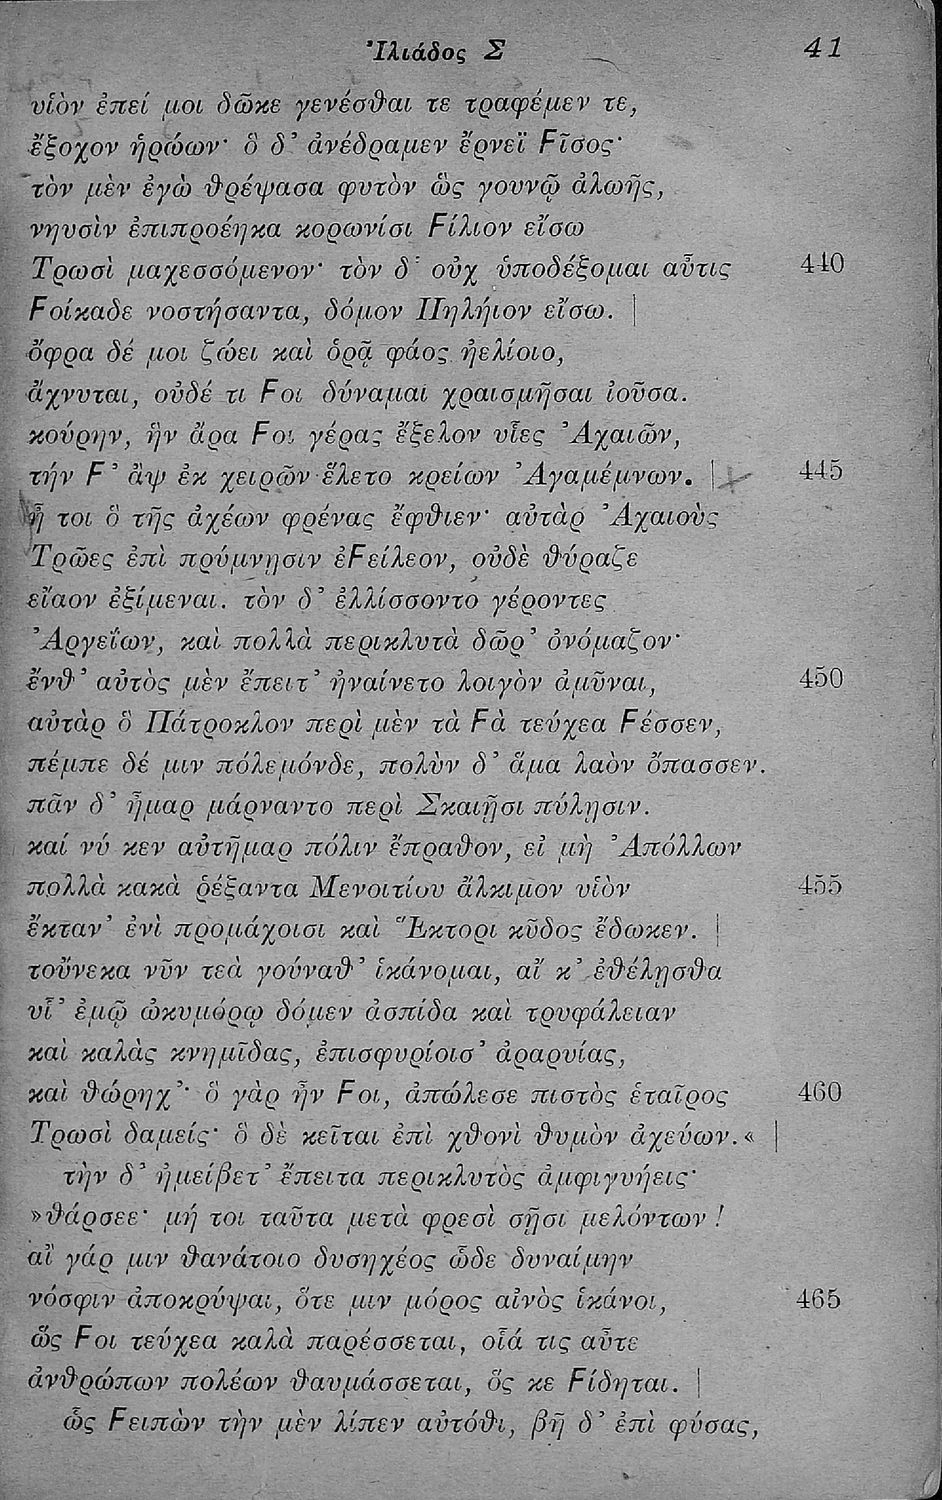 Ἰλιάδος Σ 41
υἱὸν ἐπεί μοι δῶκε γενέσθαι τε τραφέμεν τε,
ἔξοχον ἡρώων· ὃ δ’ ἀνέδραμεν ἔρνεϊ Ϝῖσος·
τὸν μὲν ἐγὼ θρέψασα φυτὸν ὣς γουνῷ ἀλωῆς,
νηυσὶν ἐπιπροέηκα κορωνίσι Ϝίλιον εἴσω
Τρωσὶ μαχεσσόμενον· τὸν δ’ οὐχ ὑποδέξομαι αὖτις 440
Ϝοίκαδε νοστήσαντα, δόμον Πηλήιον εἴσω. |
ὄφρα δέ μοι ζώει καὶ ὁρᾷ φάος ἠελίοιο,
ἄχνυται, οὐδέ τι Ϝοι δύναμαι χραισμῆσαι ἰοῦσα.
κούρην, ἣν ἄρα Ϝοι γέρας ἔξελον υἷες Ἀχαιῶν,
τήν Ϝ’ ἂψ ἐκ χειρῶν ἕλετο κρείων Ἀγαμέμνων. | 445
ἦ τοι ὃ τῆς ἀχέων φρένας ἔφθιεν· αὐτὰρ Ἀχαιοὺς
Τρῶες ἐπὶ πρύμνῃσιν ἐϜείλεον, οὐδὲ θύραζε
εἴαον ἐξίμεναι. τὸν δ’ ἐλλίσσοντο γέροντες
Ἀργεΐων, καὶ πολλὰ περικλυτὰ δῶρ’ ὀνόμαζον·
ἔνθ’ αὐτὸς μὲν ἔπειτ’ ἠναίνετο λοιγὸν ἀμῦναι, 450
αὐτὰρ ὃ Πάτροκλον περὶ μὲν τὰ Ϝὰ τεύχεα Ϝέσσεν,
πέμπε δέ μιν πόλεμόνδε, πολὺν δ’ ἅμα λαὸν ὄπασσεν.
πᾶν δ’ ἦμαρ μάρναντο περὶ Σκαιῇσι πύλῃσιν.
καί νύ κεν αὐτῆμαρ πόλιν ἔπραθον, εἰ μὴ Ἀπόλλων
πολλὰ κακὰ ῥέξαντα Μενοιτίου ἄλκιμον υἱὸν 455
ἔκταν’ ἐνὶ προμάχοισι καὶ Ἕκτορι κῦδος ἔδωκεν. |
τοὔνεκα νῦν τεὰ γούναθ’ ἱκάνομαι, αἴ κ’ ἐθέλῃσθα
υἷ’ ἐμῷ ὠκυμόρῳ δόμεν ἀσπίδα καὶ τρυφάλειαν
καὶ καλὰς κνημῖδας, ἐπισφυρίοισ’ ἀραρυίας,
καὶ θώρηχ’· ὃ γὰρ ἦν Ϝοι, ἀπώλεσε πιστὸς ἑταῖρος 460
Τρωσὶ δαμείς· ὃ δὲ κεῖται ἐπὶ χθονὶ θυμὸν ἀχεύων.« |
τὴν δ’ ἠμείβετ’ ἔπειτα περικλυτὸς ἀμφιγυήεις·
»θάρσεε· μή τοι ταῦτα μετὰ φρεσὶ σῇσι μελόντων!
αἲ γάρ μιν θανάτοιο δυσηχέος ὧδε δυναίμην
νόσφιν ἀποκρύψαι, ὅτε μιν μόρος αἰνὸς ἱκάνοι, 465
ὥς Ϝοι τεύχεα καλὰ παρέσσεται, οἷά τις αὖτε
ἀνθρώπων πολέων θαυμάσσεται, ὅς κε Ϝίδηται. |
ὣς Ϝειπὼν τὴν μὲν λίπεν αὐτόθι, βῆ δ’ ἐπὶ φύσας,